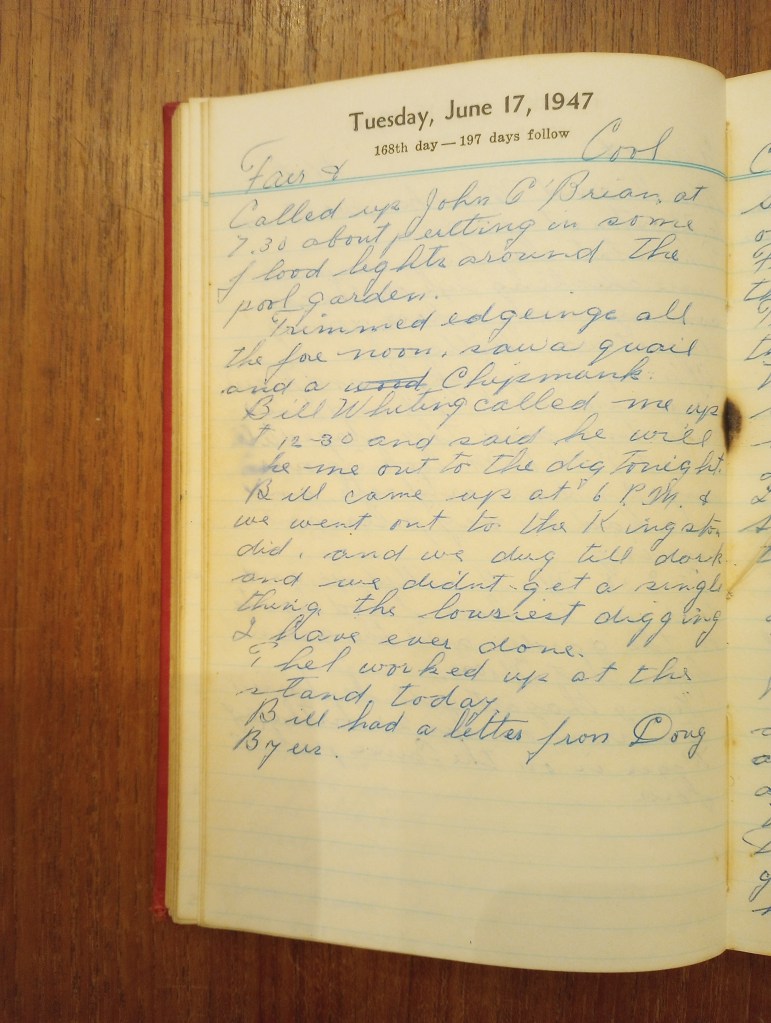 Tuesday, June 17, 1947
168th day — 197 days follow
Fair & Cool
Called up John O'Brian at
7.30 about putting in some
flood lights around the
pool garden.
Trimmed edgeings all
the fore noon. saw a quail
and a wood Chipmank.
Bill Whiting called me up
12-30 and said he will
me out to the dig tonight.
Bill came up at 6 P.M. &
we went out to the Kingston
did. and we dug till dark
and we didnt get a single
thing the lowsiest digging
I have ever done.
Thel worked up at the
stand today
Bill had a letter from Doug
Byers.